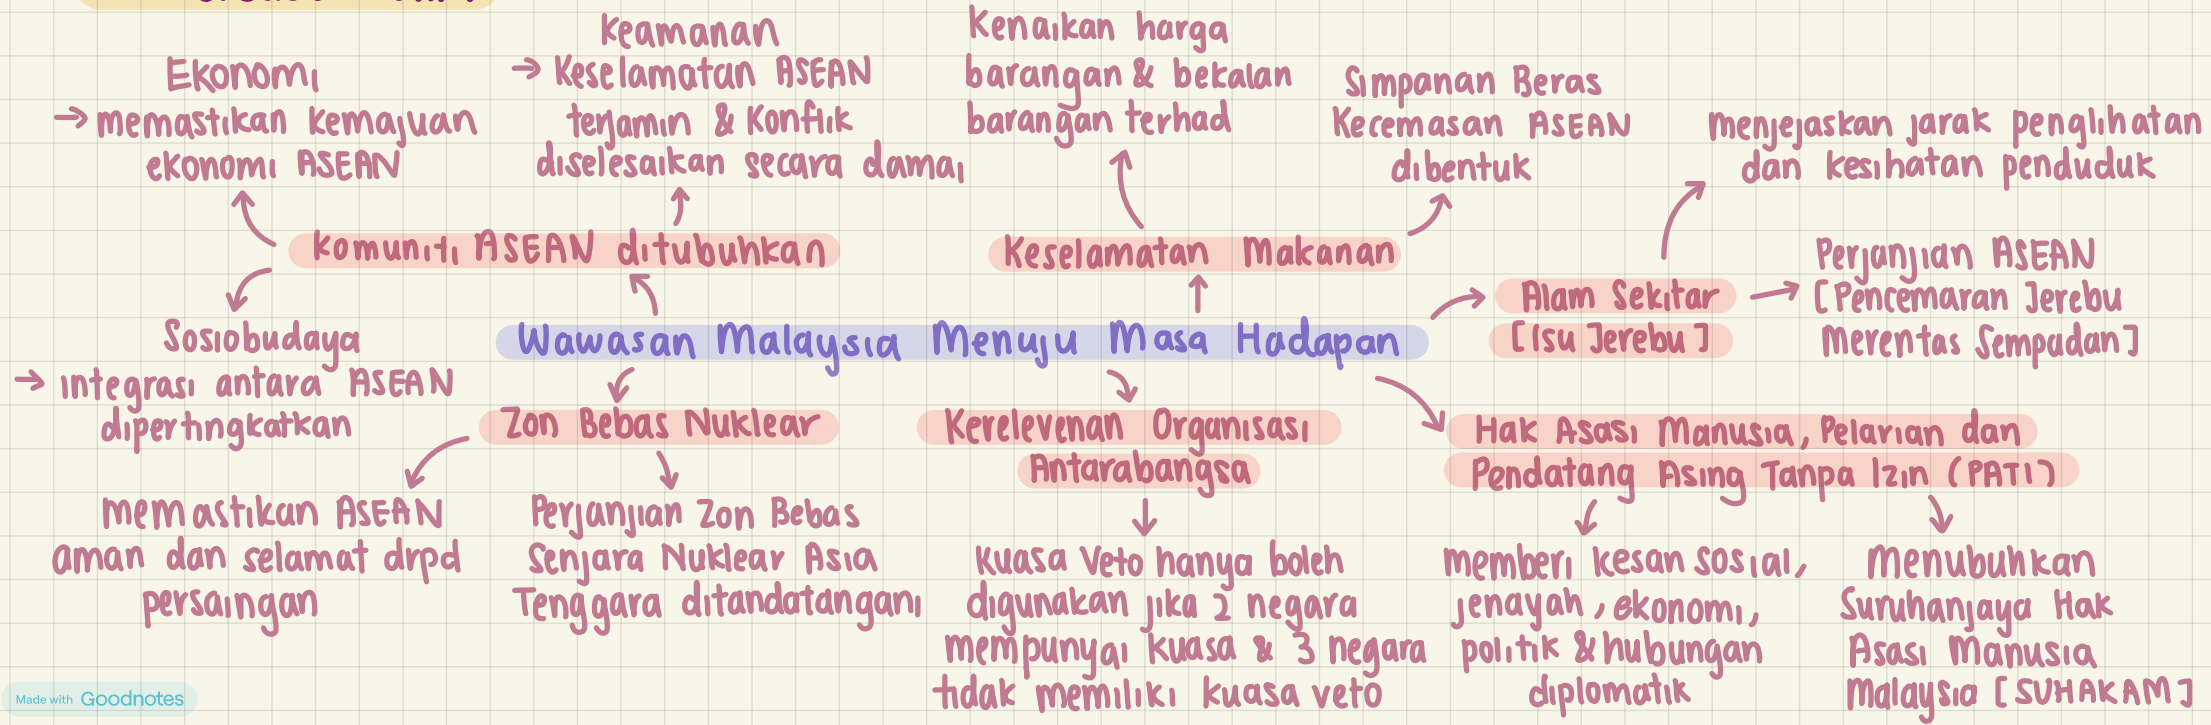 Ekonomi
→ memastikan kemajuan
ekonomi ASEAN
Keamanan
→ Keselamatan ASEAN
terjamin & Konflik
diselesaikan secara damai
Kenaikan harga
barangan & bekalan
barangan terhad
Simpanan Beras
Kecemasan ASEAN
dibentuk
menjejaskan jarak penglihatan
dan kesihatan penduduk
Komuniti ASEAN ditubuhkan
Keselamatan Makanan
Alam Sekitar
[Isu Jerebu]
Perjanjian ASEAN
[Pencemaran Jerebu
Merentas Sempadan]
Sosiobudaya
→ integrasi antara ASEAN
dipertingkatkan
Wawasan Malaysia Menuju Masa Hadapan
Zon Bebas Nuklear
Kerelevenan Organisasi
Antarabangsa
Hak Asasi Manusia, Pelarian dan
Pendatang Asing Tanpa Izin (PATI)
memastikan ASEAN
aman dan selamat drpd
persaingan
Perjanjian Zon Bebas
Senjara Nuklear Asia
Tenggara ditandatangani
Kuasa Veto hanya boleh
digunakan jika 2 negara
mempunyai kuasa & 3 negara
tidak memiliki kuasa veto
memberi kesan sosial,
jenayah, ekonomi,
politik & hubungan
diplomatik
Menubuhkan
Suruhanjaya Hak
Asasi Manusia
Malaysia [SUHAKAM]
Made with Goodnotes